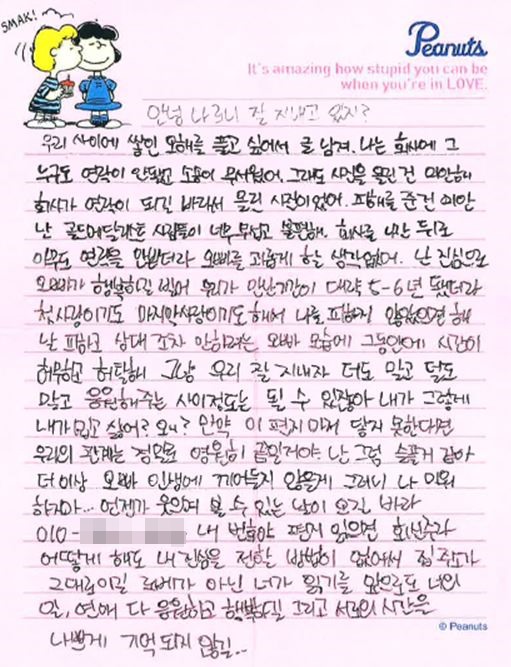 SMAK!
Peanuts
It's amazing how stupid you can be
when you're in LOVE.
안녕 나르니 잘 지내고 있지?
우리 사이에 쌓인 오해를 풀고 싶어서 글 남겨. 나는 회사에 그
누구도 연락이 안됐고 소송이 무서웠어. 그래도 사진을 올린 건 미안해
회사가 연락이 되길 바라서 올린 사진이었어. 피해를 준건 미안
난 골드메달리스트 사람들이 너무 무섭고 불편해. 회사를 나간 뒤로
아무도 연락을 안받더라 오빠를 괴롭게 할 생각 없어. 난 진심으로
오빠가 행복하길 빌어 우리가 만난기간이 대략 5-6년 됐더라
첫사랑이기도 마지막사랑이기도 해서 나를 피하지 않았으면 해
난 피하고 상대 조차 안하려는 오빠 모습에 그동안에 시간이
허무하고 허탈해 그냥 우리 잘 지내자 더도 말고 덜도
말고 응원해주는 사이정도는 될 수 있잖아 내가 그렇게
내가 밉고 싫어? 왜? 만약 이 편지마저 닿지 못한다면
우리의 관계는 정말로 영원히 끝일거야. 난 그럼 슬플거 같아
더 이상 오빠 인생에 끼어들지 않을게 그러니 나 미워
하지마... 언젠가 웃으며 볼 수 있는 날이 오길 바라
010- 내 번호야 편지 읽으면 회신주라
어떻게 해도 내 진심을 전할 방법이 없어서 집주소가
그대로이길 로버가 아닌 너가 읽기를 앞으로도 너의
일, 연애 다 응원하고 행복하길 그리고 서로의 시간은
나쁘게 기억 되지 않길..
© Peanuts